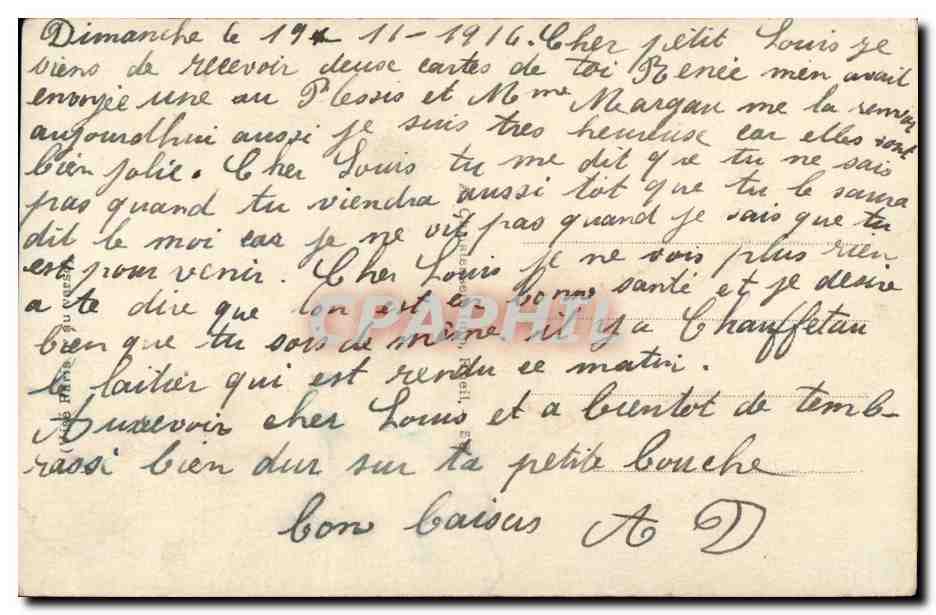 Dimanche le 19 11-1916. Cher petit Louis je
viens de recevoir deuse cartes de toi Renée men avait
envoyée une au Plessis et Mme Margau me la
aujourdhui aussi je suis tres heureuse car elles sont
bien jolie. Cher Louis tu me dit que tu ne sais
pas quand tu viendra aussi tot que tu le saura
dit le moi car je ne vit pas quand je sais que tu
est pour venir. Cher Louis je ne vois plus rien
a te dire que lon est en bonne santé et je desire
bien que tu sois de même. il y a Chauffetau
le laitier qui est rendu ce matin.
Aurevoir cher Louis et a bientot de temb-
rassi bien dur sur ta petite bouche
bon baisers A D
CPAPHIL